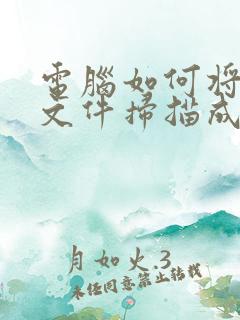 電腦如何將
文件掃描成
月如火.3
未经同意禁止转载